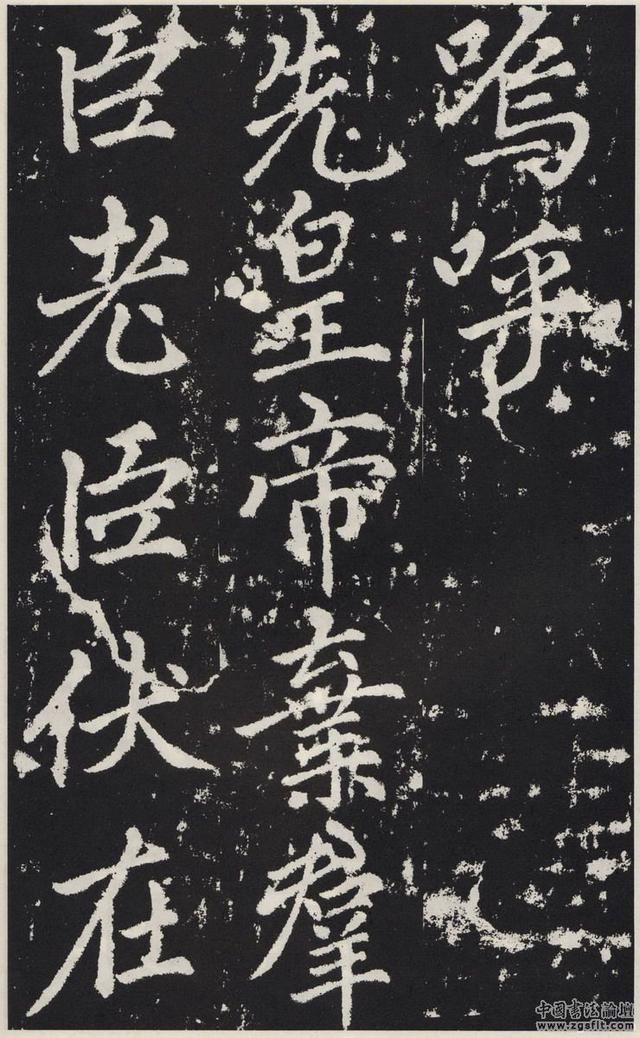 嗚呼
先皇帝棄羣
臣老臣伏在
中國書法論壇
www.zgsflt.com